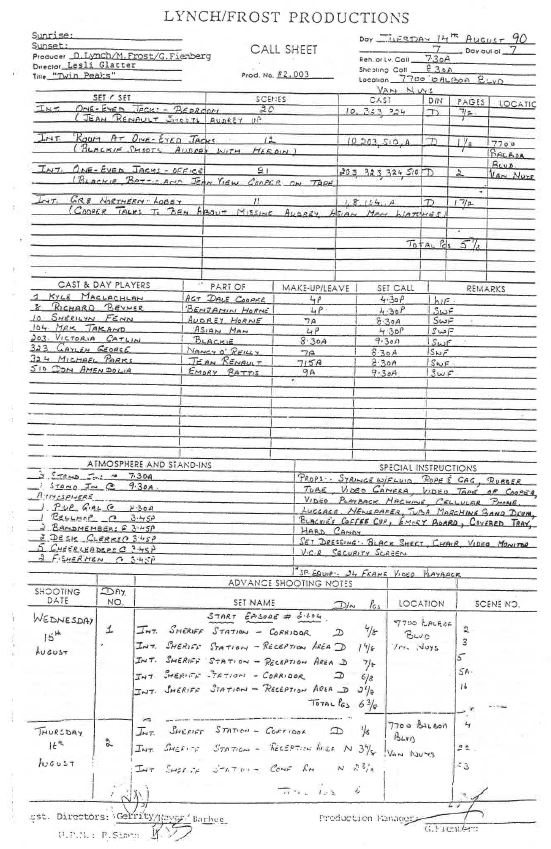 LYNCH/FROST PRODUCTIONS
Sunrise:
Sunset:
Producer D.Lynch/M.Frost/G.Fienberg
Director Lesli Glatter
Title "Twin Peaks"
CALL SHEET
Prod. No. 82.003
Day TUESDAY 14TH AUGUST 90
7 Day out of 7
Reh. or Lv. Call 7.30A
Shooting Call 8.30A
Location 7700 BALBOA BLVD
VAN NUYS
SET / SET SCENES CAST D/N PAGES LOCATIO
INT. ONE-EYED JACKS - BEDROOM 20 10, 323, 324 D
(JEAN RENAULT SHOOTS AUDREY UP
INT ROOM AT ONE-EYED JACKS 12 10 203, 510, A D 1 7700
(BLACKIE SHOOTS AUDREY WITH HEROIN) BALBOA
BLVD.
INT. ONE-EYED JACKS - OFFICE 21 203, 323, 324, 510 D 2 VAN NUYS
(BLACKIE, BATTIS AND JEAN VIEW COOPER ON TAPE
INT. GR8 NORTHERN - LOBBY 11 1, 8, 104, A D
(COOPER TALKS TO BEN ABOUT MISSING AUDREY, ASIAN MAN WATCHES)
TOTAL PGS 5
CAST & DAY PLAYERS PART OF MAKE-UP/LEAVE SET CALL REMARKS
1 KYLE MACLACHLAN AGT DALE COOPER 4P 4.30P
8 RICHARD BEYMER BENJAMIN HORNE 4P 4.30P SWF
10 SHERILYN FENN AUDREY HORNE 7A 8.30A SWF
104. MAK TAKANO ASIAN MAN 4P 4.30P SWF
203. VICTORIA CATLIN BLACKIE 8.30A 9.30A SWF
323 GALYN GEORGE NANCY O'REILLY 7A 8.30A SWF
324 MICHAEL PARKS JEAN RENAULT 7.15A 8.30A SWF
510 DON AMENDOLIA EMORY BATTIS 9A 9.30A SWF
ATMOSPHERE AND STAND-INS
3 STAND INS @ 7.30A
1 STAND IN @ 9.30A
ATMOSPHERE
1 P.UP GIRL @ 8.30A
1 BELLHOP @ 3.45P
2 BANDMEMBERS @ 3.45P
2 DESK CLERKS @ 3.45P
5 CHEERLEADERS @ 3.45P
2 FISHERMEN @ 3.45P
SPECIAL INSTRUCTIONS
PROPS:- SYRINGE W/FLUID, ROPE & GAG, RUBBER
TUBE, VIDEO CAMERA, VIDEO TAPE OF COOPER,
VIDEO PLAYBACK MACHINE, CELLULAR PHONE
LUGGAGE, NEWSPAPER, TUBA MARCHING BAND DRUM,
BLACKIE'S COFFEE CUP, EMORY BOARD, COVERED TRAY,
HARD CANDY
SET DRESSING: BLACK SHEET, CHAIR, VIDEO MONITOR
V.C.R, SECURITY SCREEN
SP. EQUIP:- 24 FRAME VIDEO PLAYBACK
ADVANCE SHOOTING NOTES
SHOOTING DATE DAY NO. SET NAME D/N PGS LOCATION SCENE NO.
START EPISODE #
WEDNESDAY 15TH AUGUST 1 7700 BALBOA BLVD VAN NUYS
INT. SHERIFF STATION - CORRIDOR D 4/8 2
INT. SHERIFF STATION - RECEPTION AREA D 1 3
INT. SHERIFF STATION - RECEPTION AREA D 7/8 5
INT SHERIFF STATION - CORRIDOR D 6/8 5A
INT SHERIFF STATION - RECEPTION AREA D 16
TOTAL PGS 6
THURSDAY 16TH AUGUST 2 7700 BALBOA BLVD VAN NUYS
INT SHERIFF STATION - CORRIDOR D 4
INT SHERIFF STATION - RECEPTION AREA N 22
INT SHERIFF STATION - CONF RM N 23
TOTAL PGS
sst. Directors: Gerrity/Hayes/Barhue
U.P.M.: P.Simon
Production Manager:
G.Fienberg